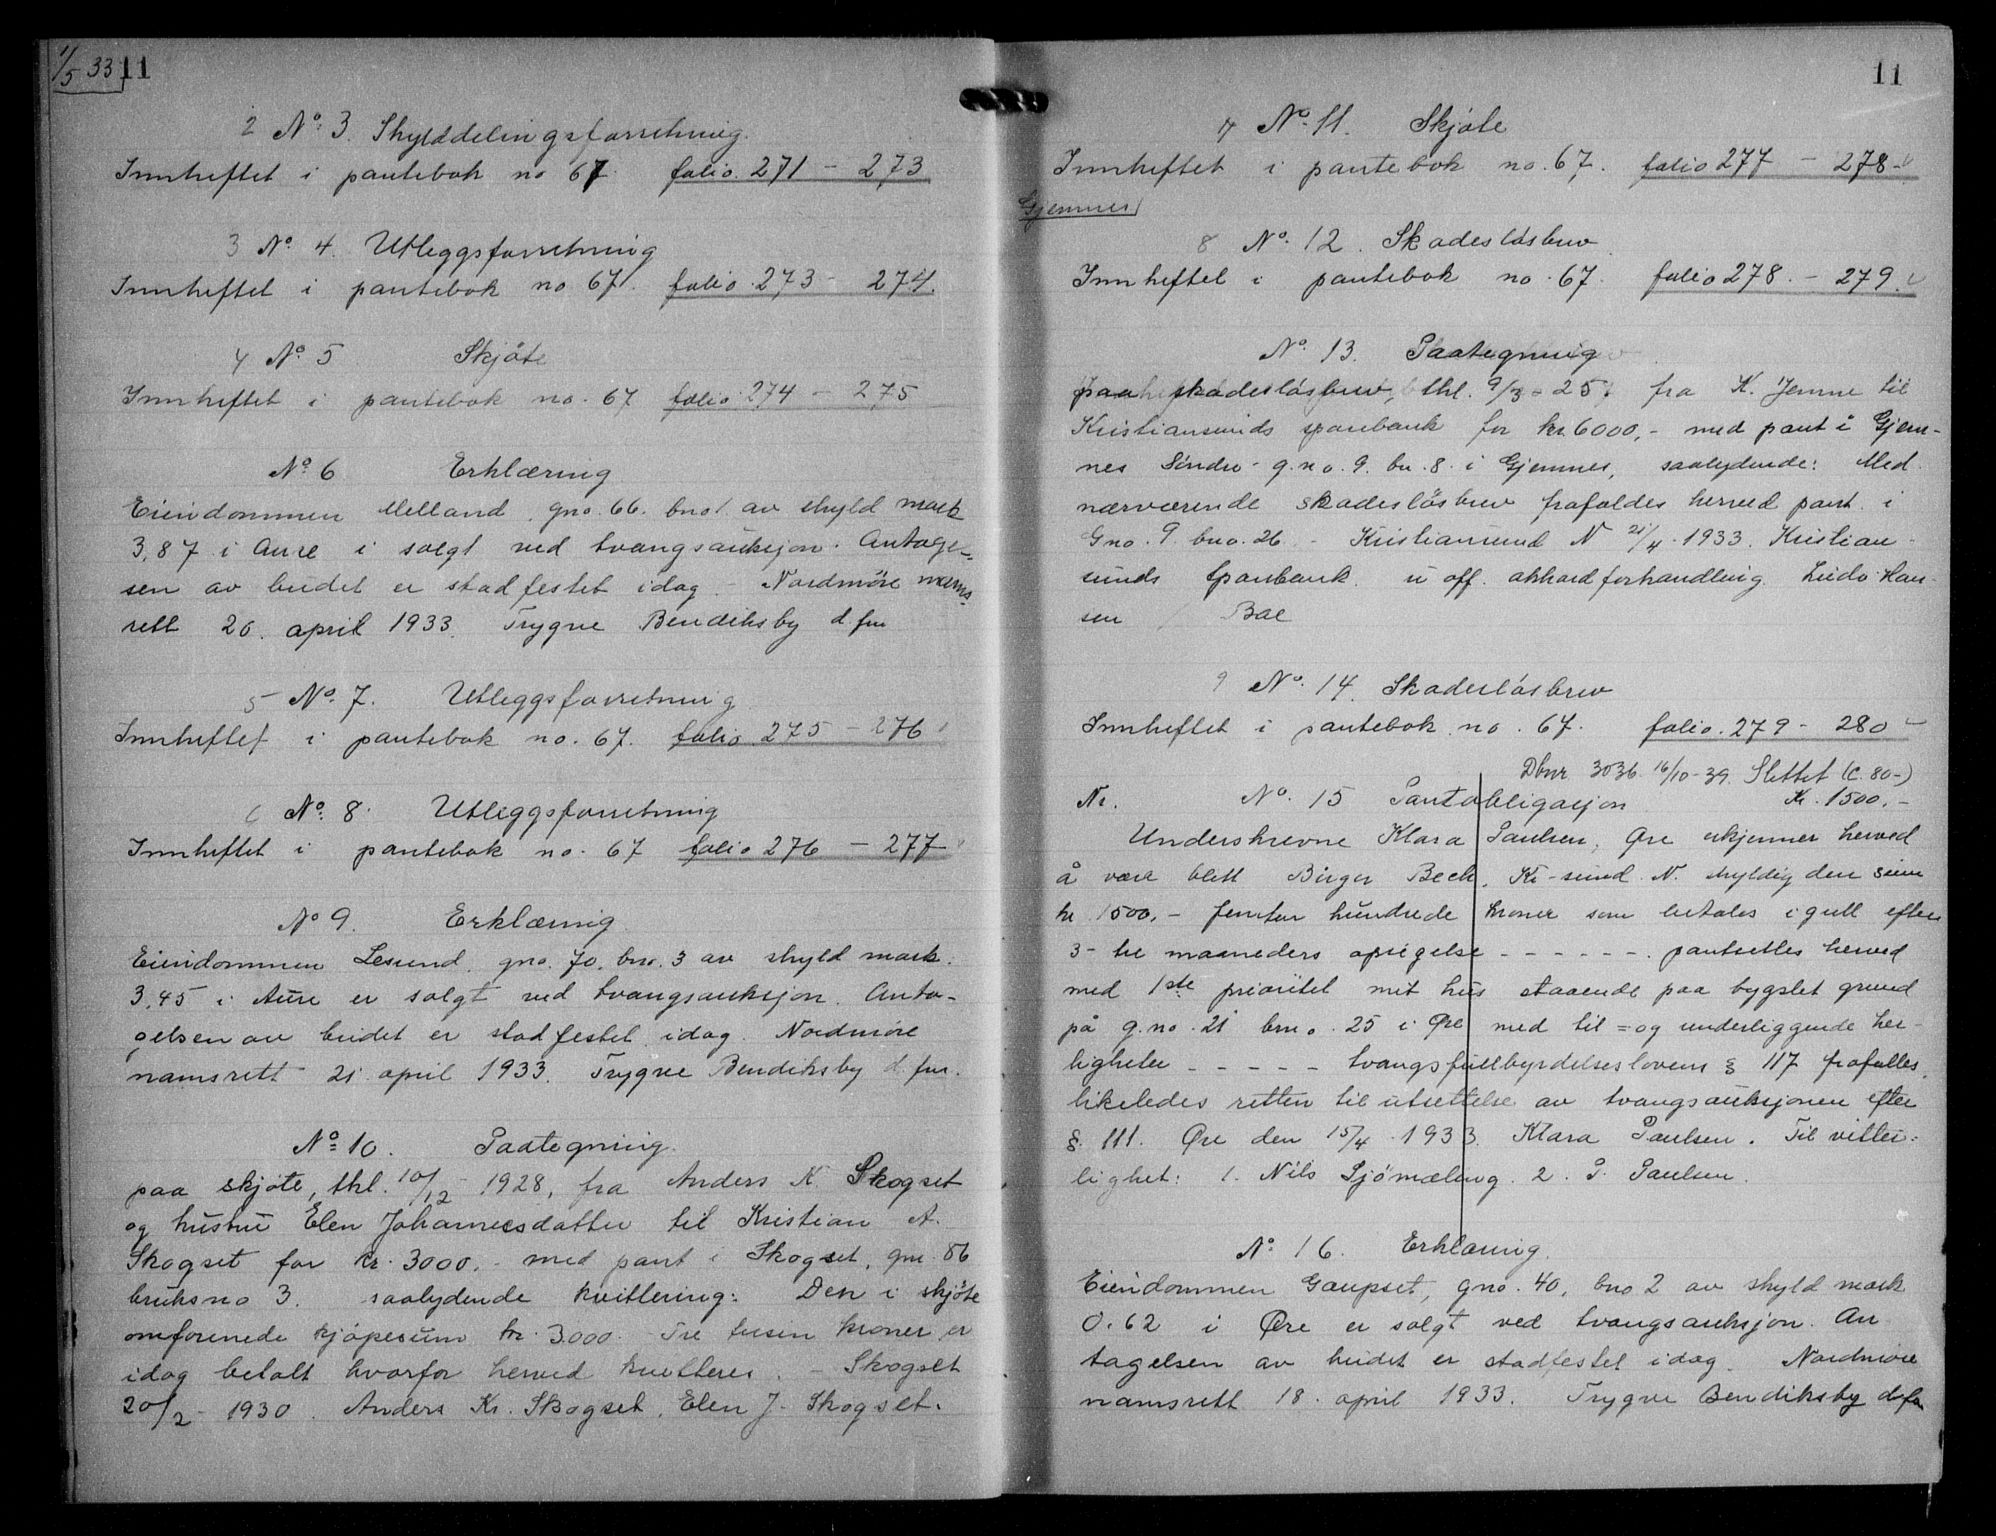 1/5 33 11
2 No. 3. Skylddelingsforretning.
Innheftet i pantebok no 67. folio. 271 - 273
3 No. 4. Utleggsforretning
Innheftet i pantebok no 67. folio. 273 - 274.
4 No. 5 Skjøte
Innheftet i pantebok no. 67 folio 274 - 275
No. 6 Erklæring
Eiendommen Melland, gno. 66. bno 1. av skyld mark
3,87 i Aure i solgt ved tvangsauksjon. Antagel-
sen av budet er stadfestet idag - Nordmøre nams-
rett 20. april 1933. Trygve Bendiksby d.fm
5 No. 7. Utleggsforretning
Innheftet i pantebok no. 67. folio. 275 - 276
6 No. 8. Utleggsforretning
Innheftet i pantebok no. 67 folio 276 - 277
No 9. Erklæring
Eiendommen Lesund, gno. 70, bno. 3 av skyld mark.
3,45 i Aure er solgt ved tvangsauksjon. Anta-
gelsen av budet er stadfestet idag. Nordmøre
namsrett 21 april 1933. Trygve Bendiksby d.fm.
No. 10. Paategning
paa skjøte, thl. 10/12 - 1928, fra Anders K. Skogset
og hustru Elen Johannesdatter til Kristian A.
Skogset for kr. 3000.- med pant i Skogset, gno. 86
bruksno 3. saalydende kvittering: Den i skjøte
omforenede kjøpesum kr. 3000. Tre tusin kroner er
idag betalt hvorfor herved kvitteres. - Skogset
20/2 - 1930. Anders Kr. Skogset, Elen J. Skogset.
11
7 No. 11. Skjøte
Innheftet i pantebok no. 67. folio 277 - 278
Gjemnes
8 No. 12. Skadesløsbrev
Innheftet i pantebok no. 67. folio 278. - 279.
No. 13. Paategning
paa skadesløsbrev, thl. 9/3 - 25 fra K. Jenne til
Kristiansunds sparebank for kr. 6000,- med pant i Gjem-
nes Søndre - g.no. 9. bn. 8. i Gjemnes, saalydende: Med
nærværende skadesløsbrev frafaldes herved pant i
Gno. 9 bno. 26. - Kristiansund N 21/4. 1933. Kristian-
sunds Sparebank. u off. akkordforhandling Ludv Han-
sen / Bae
9 No. 14. Skadesløsbrev
Innheftet i pantebok no. 67. folio. 279 - 280
Dbnr. 3036. 16/10-39. Slettet (C. 80-)
Nr. No. 15 Pantobligasjon Kr. 1500.-
Underskrevne Klara Paulsen, Øre erkjenner herved
å være blitt Birger Bech, Kr-sund N. skyldig den sum
kr 1500.- femten hundrede kroner som betales i gull efter
3- tre maaneders opsigelse - - - - - -. pantsettes herved
med 1ste prioritet mit hus staaende paa bygslet grund
på g.no. 21 brno. 25 i Øre med til = og underliggende her-
ligheter - - - - - tvangsfullbyrdelseslovens § 117 frafalles,
likeledes retten til utsettelse av tvangsauksjonen efter
§. 111. Øre den 15/4. 1933. Klara Paulsen. Til vitter-
lighet: 1. Nils Sjømæling. 2. P. Paulsen.
No. 16. Erklæring.
Eiendommen Gaupset, gno. 40, bno 2 av skyld mark
0.62 i Øre er solgt ved tvangsauksjon. An-
tagelsen av budet er stadfestet idag. Nordmøre
namsrett 18. april 1933. Trygve Bendiksby d.fm